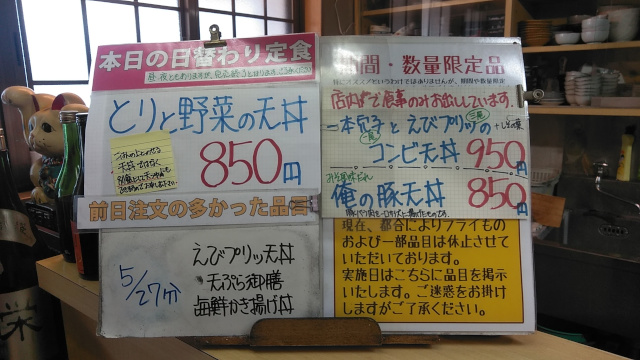 本日の日替わり定食
とりと野菜の天丼
850円
前日注文の多かった品名
5/27分
えびプリッ天丼
天ぷら御膳
海鮮かき揚げ丼
期間・数量限定品
店内で食事のみお出ししています。
一本穴子とえびプリッの
コンビ天丼 950円
俺の豚天丼 850円
現在、都合によりフライもの
および一部品目は休止させて
いただいております。
実施日はこちらに品目を掲示
いたします。ご迷惑をお掛け
しますがご了承ください。
栄